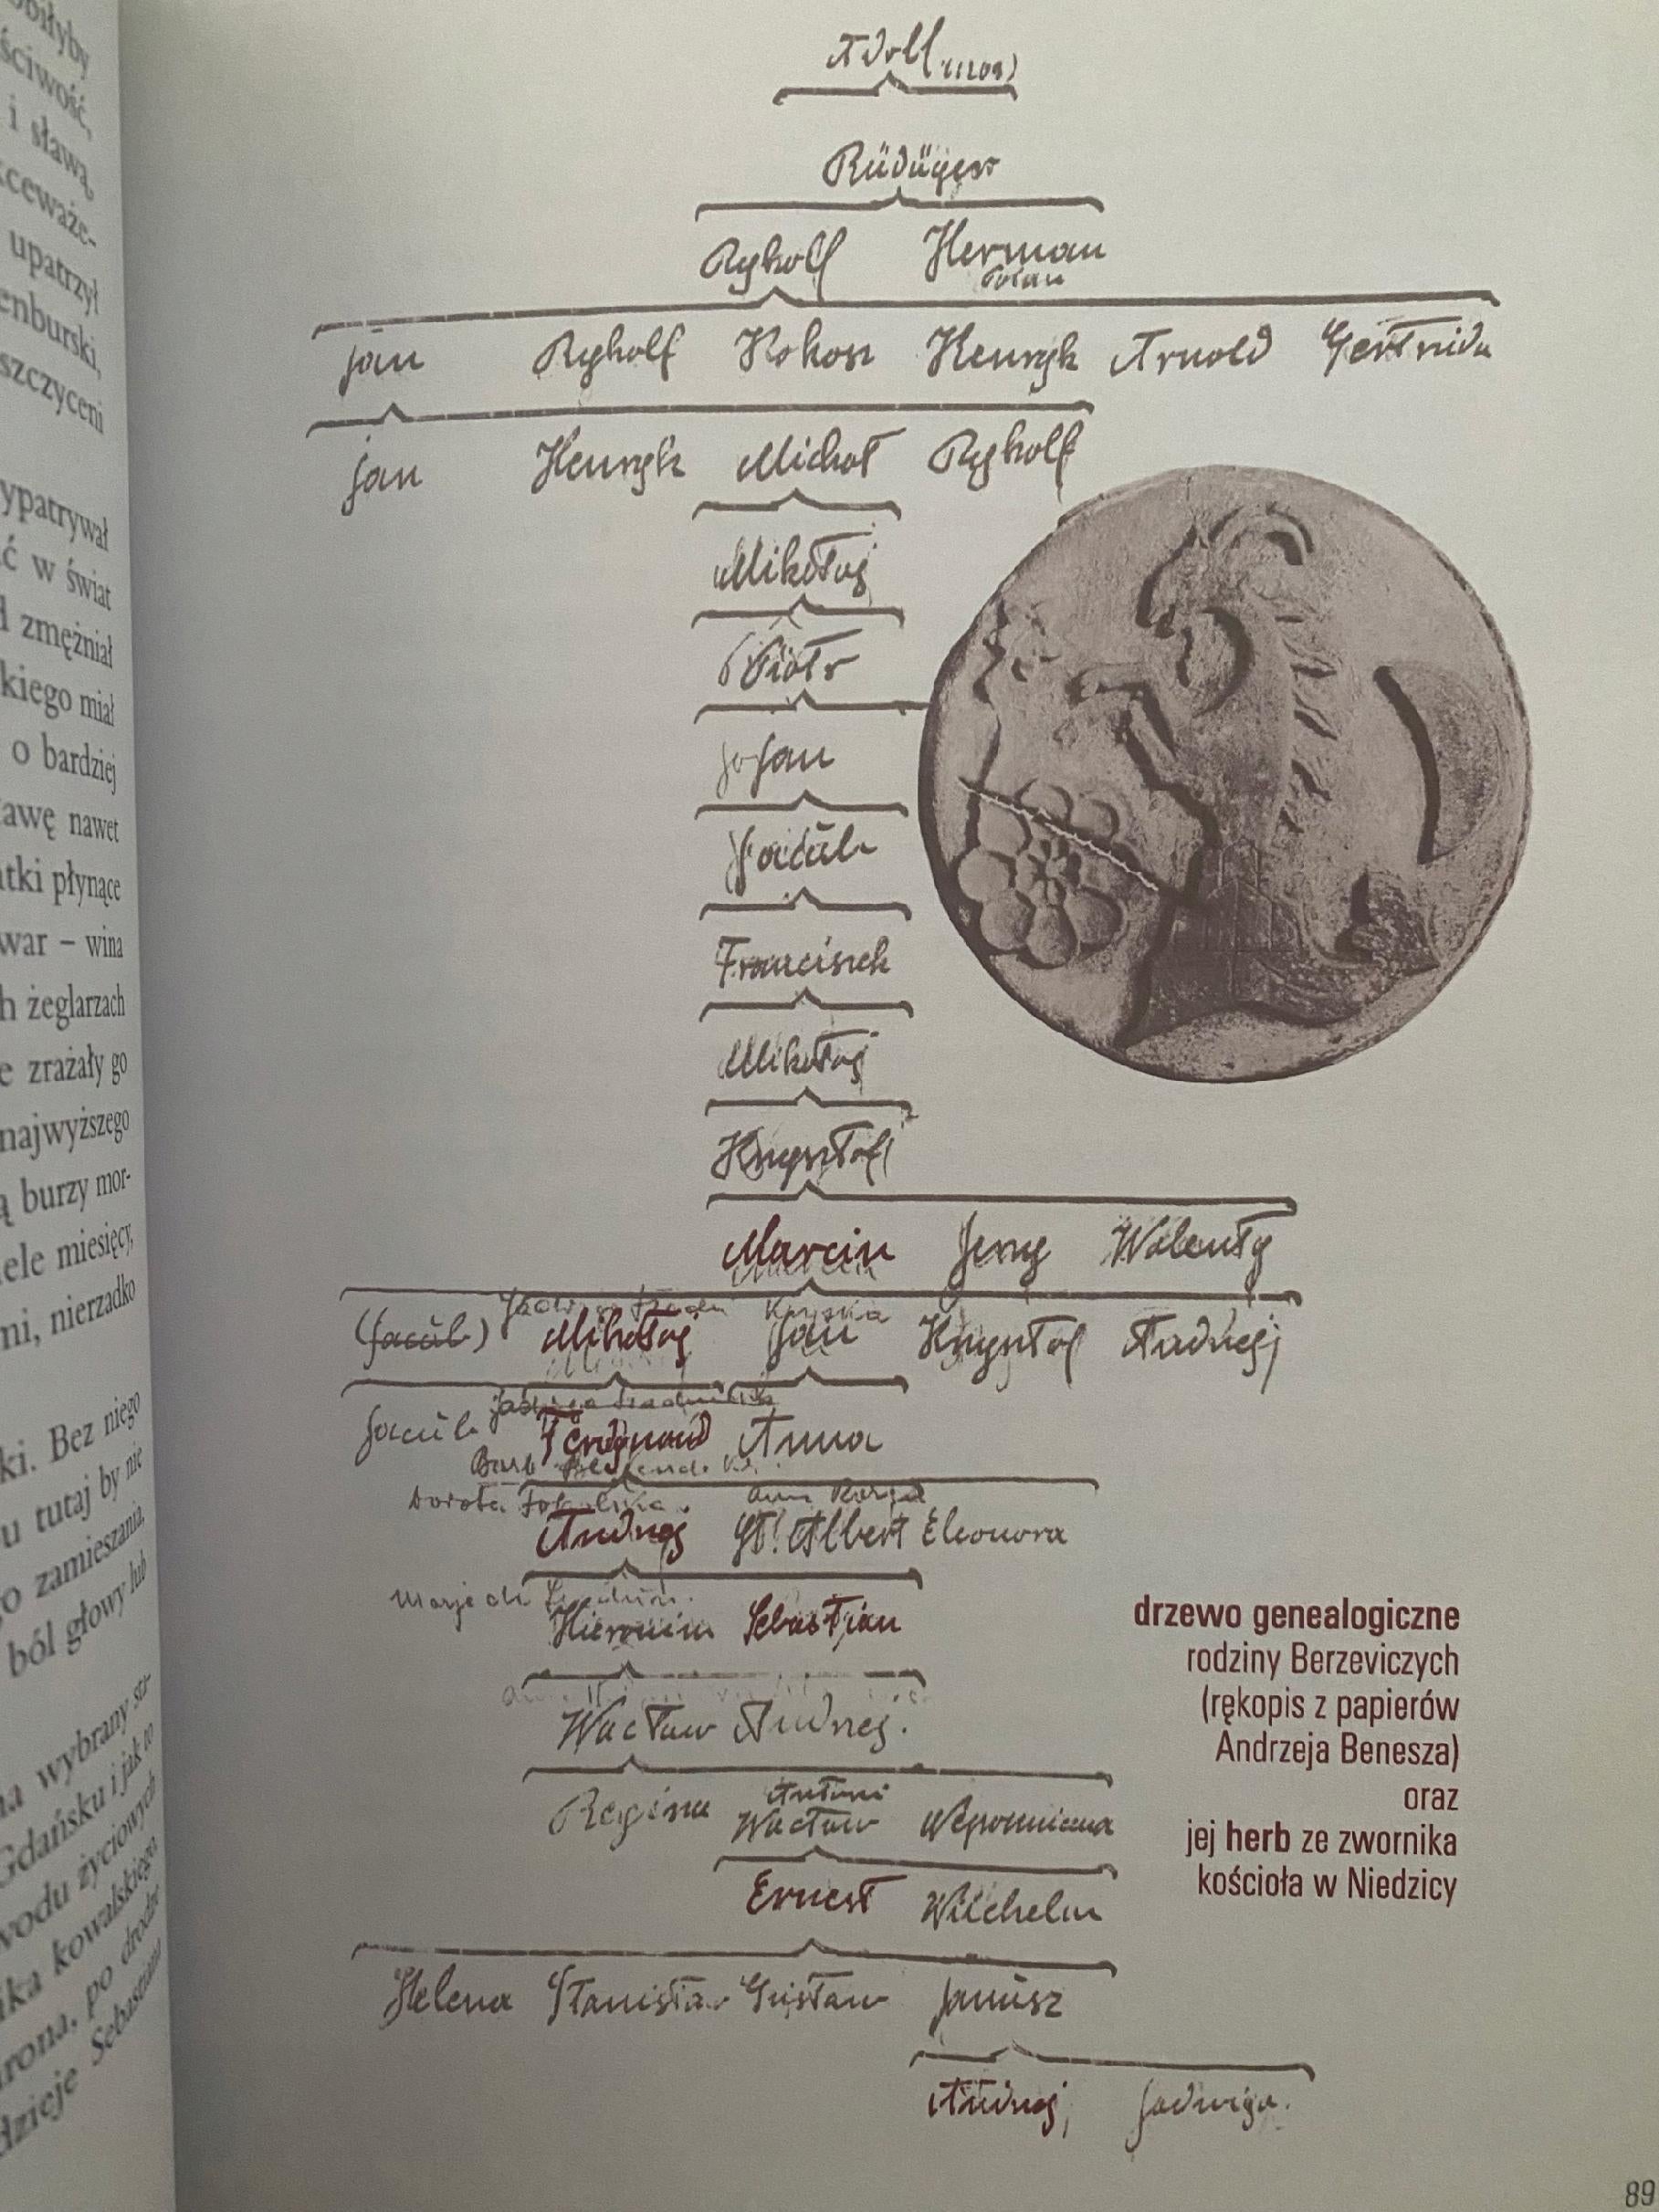 Adolf (1209)
Rüdüger
Rykolf Herman
Polan
Jan Rykolf Kokosz Henryk Arnold Gertruda
Jan Henryk Michał Rykolf
Mikołaj
Piotr
Jan
Jacúb
Franciszek
Mikołaj
Krzysztof
Marcin Jerzy Walenty
(Jacúb) Mikołaj Jan Krzysztof Andrzej
Jacúb Ferdynand Anna
Barb
Dorota
Andrzej St. Albert Eleonora
Hieronim Sebastian
Wacław Andrzej.
Antoni
Regina Wacław Wspomniana
Ernest Wilchelm
Helena Stanisław Gustaw Janusz
Andrzej, Jadwiga.
drzewo genealogiczne
rodziny Berzeviczych
(rękopis z papierów
Andrzeja Benesza)
oraz
jej herb ze zwornika
kościoła w Niedzicy
89
ściwość,
i sławą,
upatrzył
enburski,
szczyceni
ypatrywał
ć w świat
zmężniał
kiego miał
o bardziej
awę nawet
tki płynące
war – wina
h żeglarzach
e zrażały go
najwyższego
ą burzy mor-
ele miesięcy,
mi, nierzadko
ki. Bez niego
u tutaj by nie
o zamieszania,
ból głowy lub
na wybrany
Gdańsku i jak to
wodu życiowych
ika kowalskiego
rona, po drodze
dzieje Sebastiana